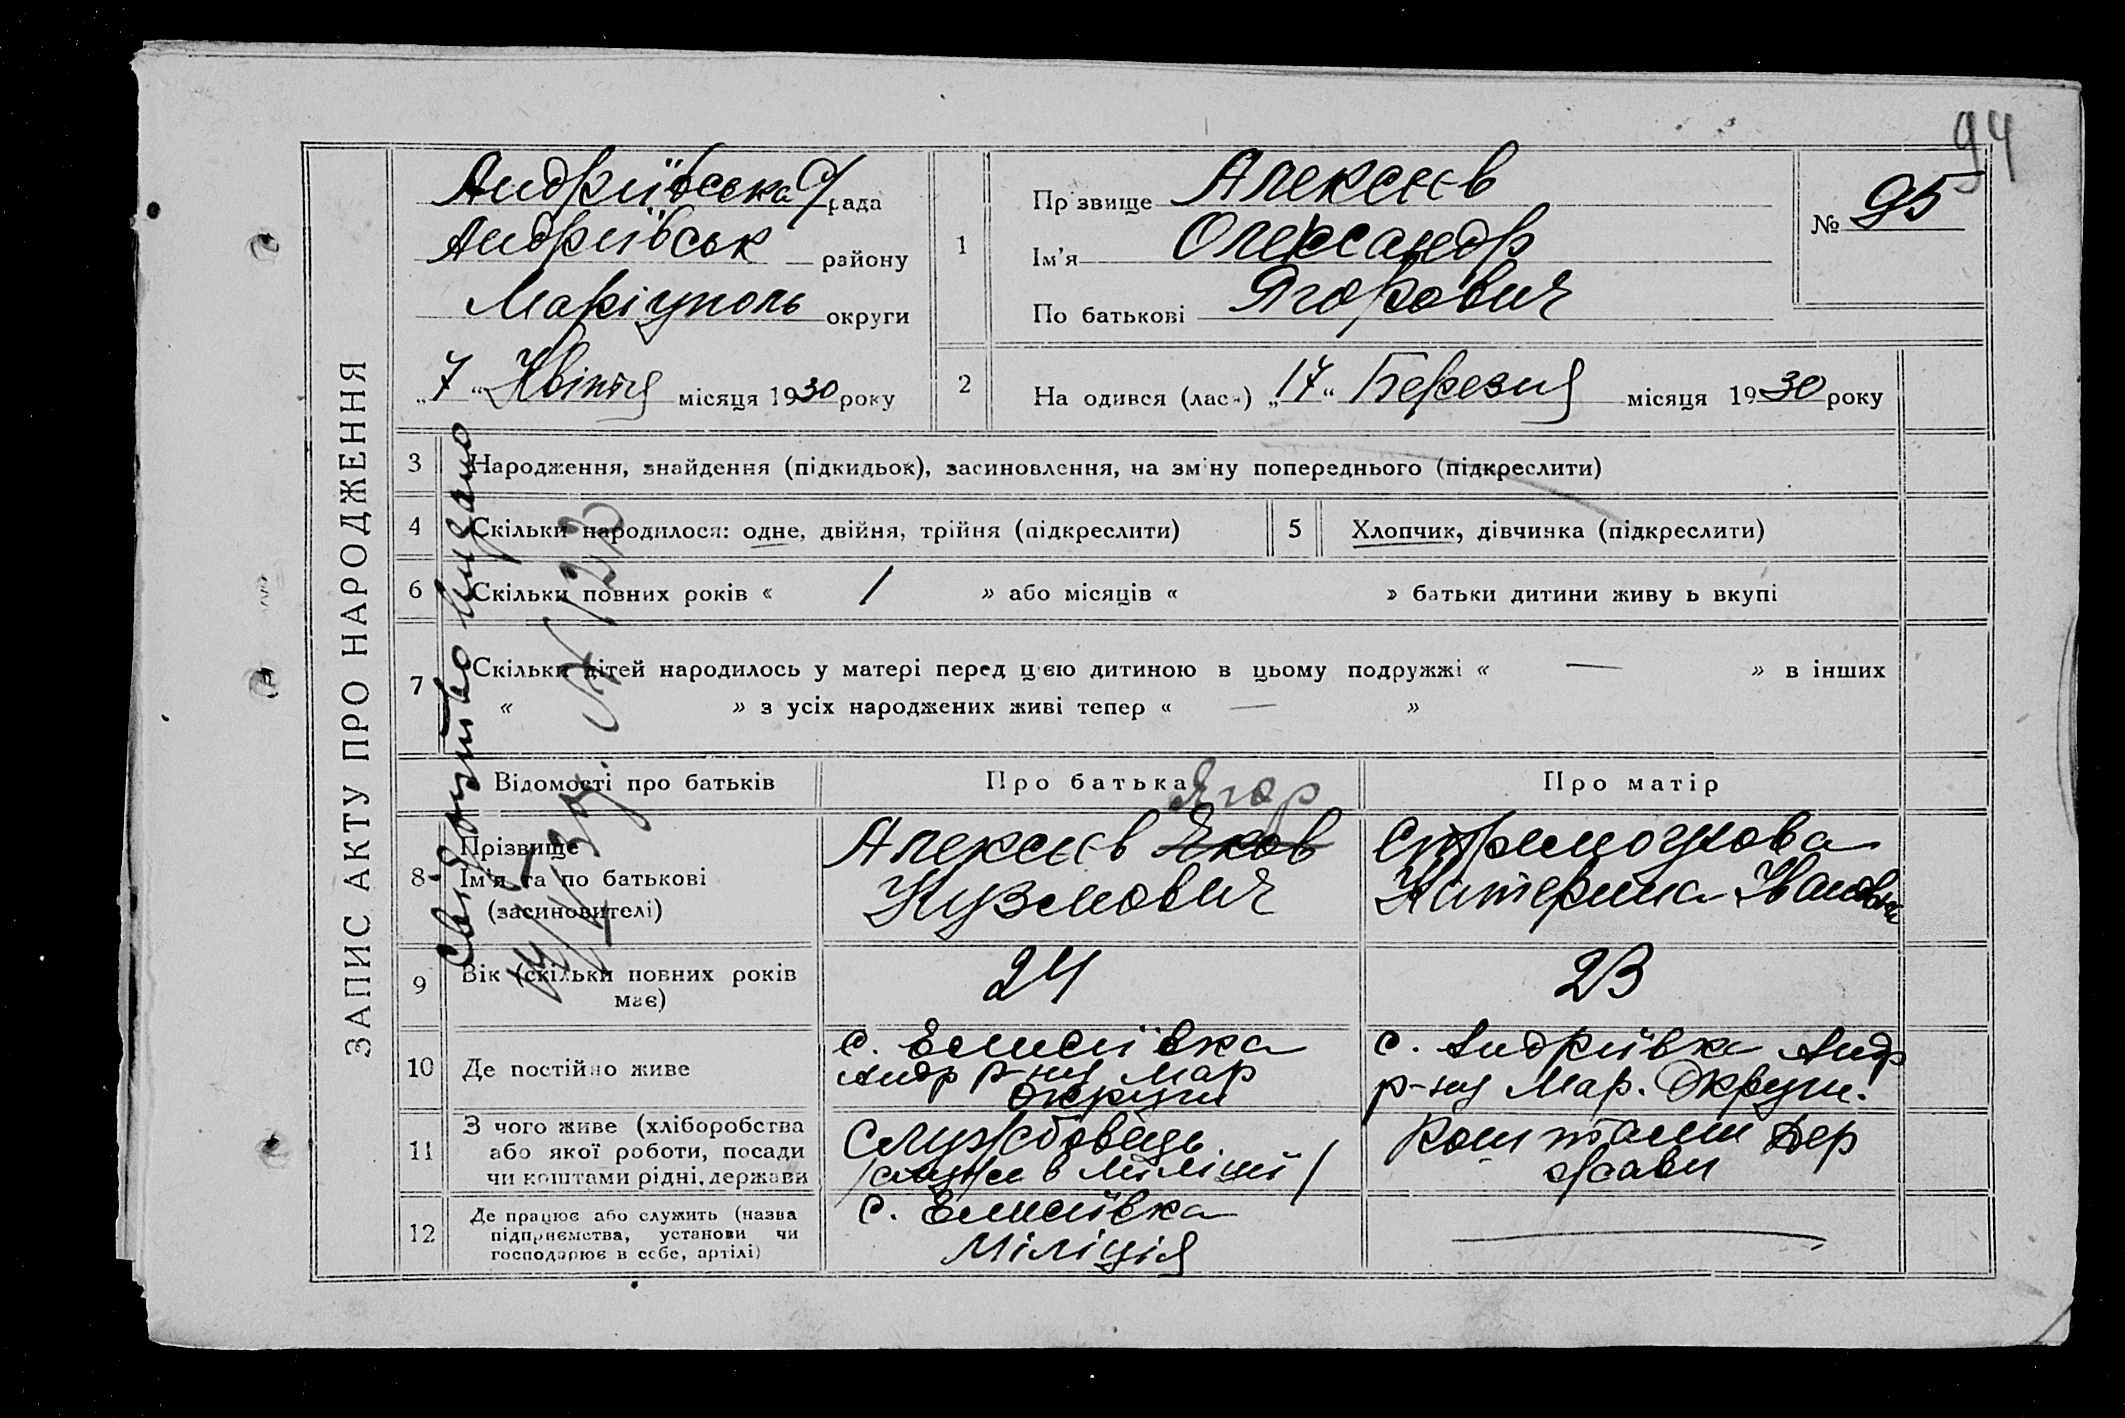 94
ЗАПИС АКТУ ПРО НАРОДЖЕННЯ
Андріївська С/рада
Андріївськ району
Маріуполь округи
„7“ Квітня місяця 1930 року
1
Прізвище Алексєєв
Ім'я Олександр
По батькові Ягорович
№ 95
2
На одився (лась) „17“ Березня місяця 1930 року
3 Народження, знайдення (підкидьок), засиновлення, на зміну попереднього (підкреслити)
4 Скільки народилося: одне, двійня, трійня (підкреслити)
5 Хлопчик, дівчинка (підкреслити)
6 Скільки повних років « 1 » або місяців « » батьки дитини живу ь вкупі
7 Скільки дітей народилось у матері перед цією дитиною в цьому подружжі « — » в інших
« » з усіх народжених живі тепер « — »
Свідоцтво видано
Відомості про батьків
Про батька
Про матір
8 Прізвище
Ім'я та по батькові
(засиновителі)
Ягор
Алексєєв Яков
Кузмович
Стремоухова
Катерина Івановна
9 Вік (скільки повних років
має)
24
23
10 Де постійно живе
с. Елисиївка
Андр р-ну Мар
Округи
с. Андріївка Андр
р-ну Мар. Округи.
11 З чого живе (хліборобства
або якої роботи, посади
чи коштами рідні, держави
Службовець
/служе в Міліції/
Коштами Дер
жави
12 Де працює або служить (назва
підприємства, установи чи
господарює в себе, артілі)
с. Елисиївка
Міліція